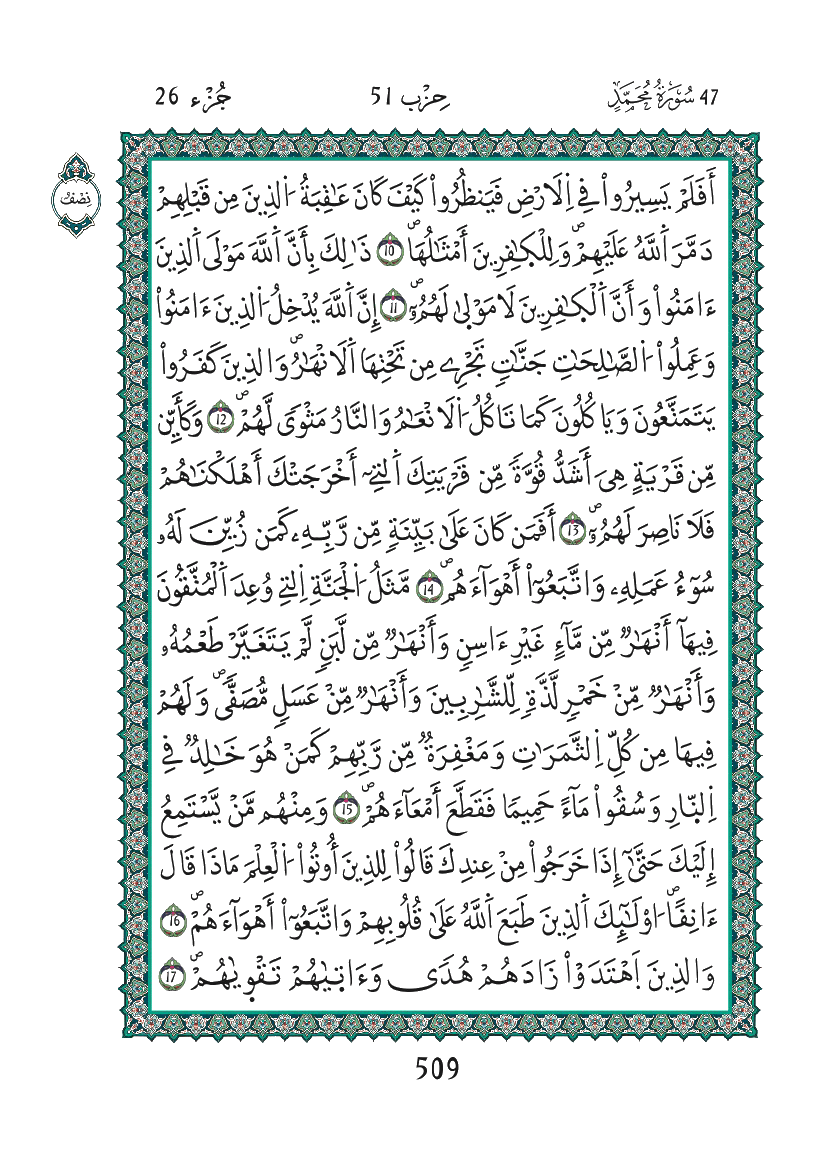 47 سُورَةُ مُحَمَّدٍ
حِزْب 51
جُزْء 26
نِصْف
أَفَلَمْ يَسِيرُواْ فِے اِ۬لَارْضِ فَيَنظُرُواْ كَيْفَ كَانَ عَٰقِبَةُ اُ۬لذِينَ مِن قَبْلِهِمْ
دَمَّرَ اَ۬للَّهُ عَلَيْهِمْۖ وَلِلْكٰ۪فِرِينَ أَمْثَٰلُهَاۖ 10 ذَٰلِكَ بِأَنَّ اَ۬للَّهَ مَوْلَى اَ۬لذِينَ
ءَامَنُواْ وَأَنَّ اَ۬لْكٰ۪فِرِينَ لَا مَوْل۪ىٰ لَهُمُۥٓۖ 11 إِنَّ اَ۬للَّهَ يُدْخِلُ اُ۬لذِينَ ءَامَنُواْ
وَعَمِلُواْ اُ۬لصَّٰلِحَٰتِ جَنَّٰتٖ تَجْرِے مِن تَحْتِهَا اَ۬لَانْهَٰرُۖ وَالذِينَ كَفَرُواْ
يَتَمَتَّعُونَ وَيَاكُلُونَ كَمَا تَاكُلُ اُ۬لَانْعَٰمُ وَالنَّارُ مَثْوىٗ لَّهُمْۖ 12 وَكَأَيِّن
مِّن قَرْيَةٍ هِيَ أَشَدُّ قُوَّةٗ مِّن قَرْيَتِكَ اَ۬لتِےٓ أَخْرَجَتْكَ أَهْلَكْنَٰهُمْ
فَلَا نَاصِرَ لَهُمُۥٓۖ 13 أَفَمَن كَانَ عَلَىٰ بَيِّنَةٖ مِّن رَّبِّهِۦ كَمَن زُيِّنَ لَهُۥ
سُوٓءُ عَمَلِهِۦ وَاتَّبَعُوٓاْ أَهْوَآءَهُمْۖ 14 مَّثَلُ اُ۬لْجَنَّةِ اِ۬لتِے وُعِدَ اَ۬لْمُتَّقُونَ
فِيهَآ أَنْهَٰرٞ مِّن مَّآءٍ غَيْرِ ءَاسِنٖ وَأَنْهَٰرٞ مِّن لَّبَنٖ لَّمْ يَتَغَيَّرْ طَعْمُهُۥ
وَأَنْهَٰرٞ مِّنْ خَمْرٖ لَّذَّةٖ لِّلشَّٰرِبِينَ وَأَنْهَٰرٞ مِّنْ عَسَلٖ مُّصَفّىٗۖ وَلَهُمْ
فِيهَا مِن كُلِّ اِ۬لثَّمَرَٰتِ وَمَغْفِرَةٞ مِّن رَّبِّهِمْ كَمَنْ هُوَ خَٰلِدٞ فِے
اِ۬لنّ۪ارِ وَسُقُواْ مَآءً حَمِيماٗ فَقَطَّعَ أَمْعَآءَهُمْۖ 15 وَمِنْهُم مَّنْ يَّسْتَمِعُ
إِلَيْكَ حَتَّىٰٓ إِذَا خَرَجُواْ مِنْ عِندِكَ قَالُواْ لِلذِينَ أُوتُواْ اُ۬لْعِلْمَ مَاذَا قَالَ
ءَانِفاًۖ ا۟وْلَٰٓئِكَ اَ۬لذِينَ طَبَعَ اَ۬للَّهُ عَلَىٰ قُلُوبِهِمْ وَاتَّبَعُوٓاْ أَهْوَآءَهُمْۖ 16
وَالذِينَ اَ۪هْتَدَوْاْ زَادَهُمْ هُدىٗ وَءَات۪يٰهُمْ تَقْو۪يٰهُمْۖ 17
509